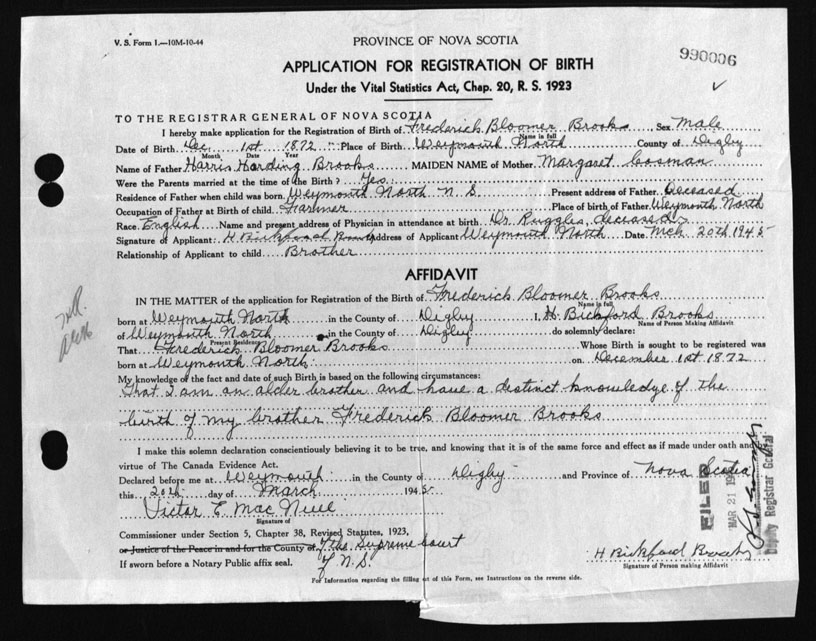 V. S. Form 1.—10M-10-44
PROVINCE OF NOVA SCOTIA
990006
APPLICATION FOR REGISTRATION OF BIRTH
Under the Vital Statistics Act, Chap. 20, R. S. 1923
TO THE REGISTRAR GENERAL OF NOVA SCOTIA
I hereby make application for the Registration of Birth of Frederick Bloomer Brooks, Sex Male
Name in full
Date of Birth Dec 1st 1872 Place of Birth Weymouth North County of Digby
Month Date Year
Name of Father Harris Harding Brooks MAIDEN NAME of Mother Margaret Cosman
Were the Parents married at the time of the Birth? Yes
Residence of Father when child was born Weymouth North N. S. Present address of Father Deceased
Occupation of Father at Birth of child Farmer Place of birth of Father Weymouth North
Race English Name and present address of Physician in attendance at birth Dr Ruggles, deceased
Signature of Applicant: H Bickford Brooks Address of Applicant Weymouth North Date Mch 20th 1945
Relationship of Applicant to child Brother
AFFIDAVIT
IN THE MATTER of the application for Registration of the Birth of Frederick Bloomer Brooks
Name in full
born at Weymouth North in the County of Digby I, H. Bickford Brooks
Name of Person Making Affidavit
of Weymouth North in the County of Digby do solemnly declare:
Present Residence
That Frederick Bloomer Brooks Whose Birth is sought to be registered was
born at Weymouth North on December 1st 1872
My knowledge of the fact and date of such Birth is based on the following circumstances:
That I am an alder brother and have a distinct knowledge of the
birth of my brother Frederick Bloomer Brooks
I make this solemn declaration conscientiously believing it to be true, and knowing that it is of the same force and effect as if made under oath and
virtue of The Canada Evidence Act.
Declared before me at Weymouth in the County of Digby and Province of Nova Scotia
this 20th day of March 1945
Victor E Mac Neill
Signature of
Commissioner under Section 5, Chapter 38, Revised Statutes, 1923,
or Justice of the Peace in and for the County of the Supreme Court
If sworn before a Notary Public affix seal. of N.S.
H Bickford Brooks
Signature of Person making Affidavit
For Information regarding the filling out of this Form, see Instructions on the reverse side.
FILED
MAR 21
Deputy Registrar General